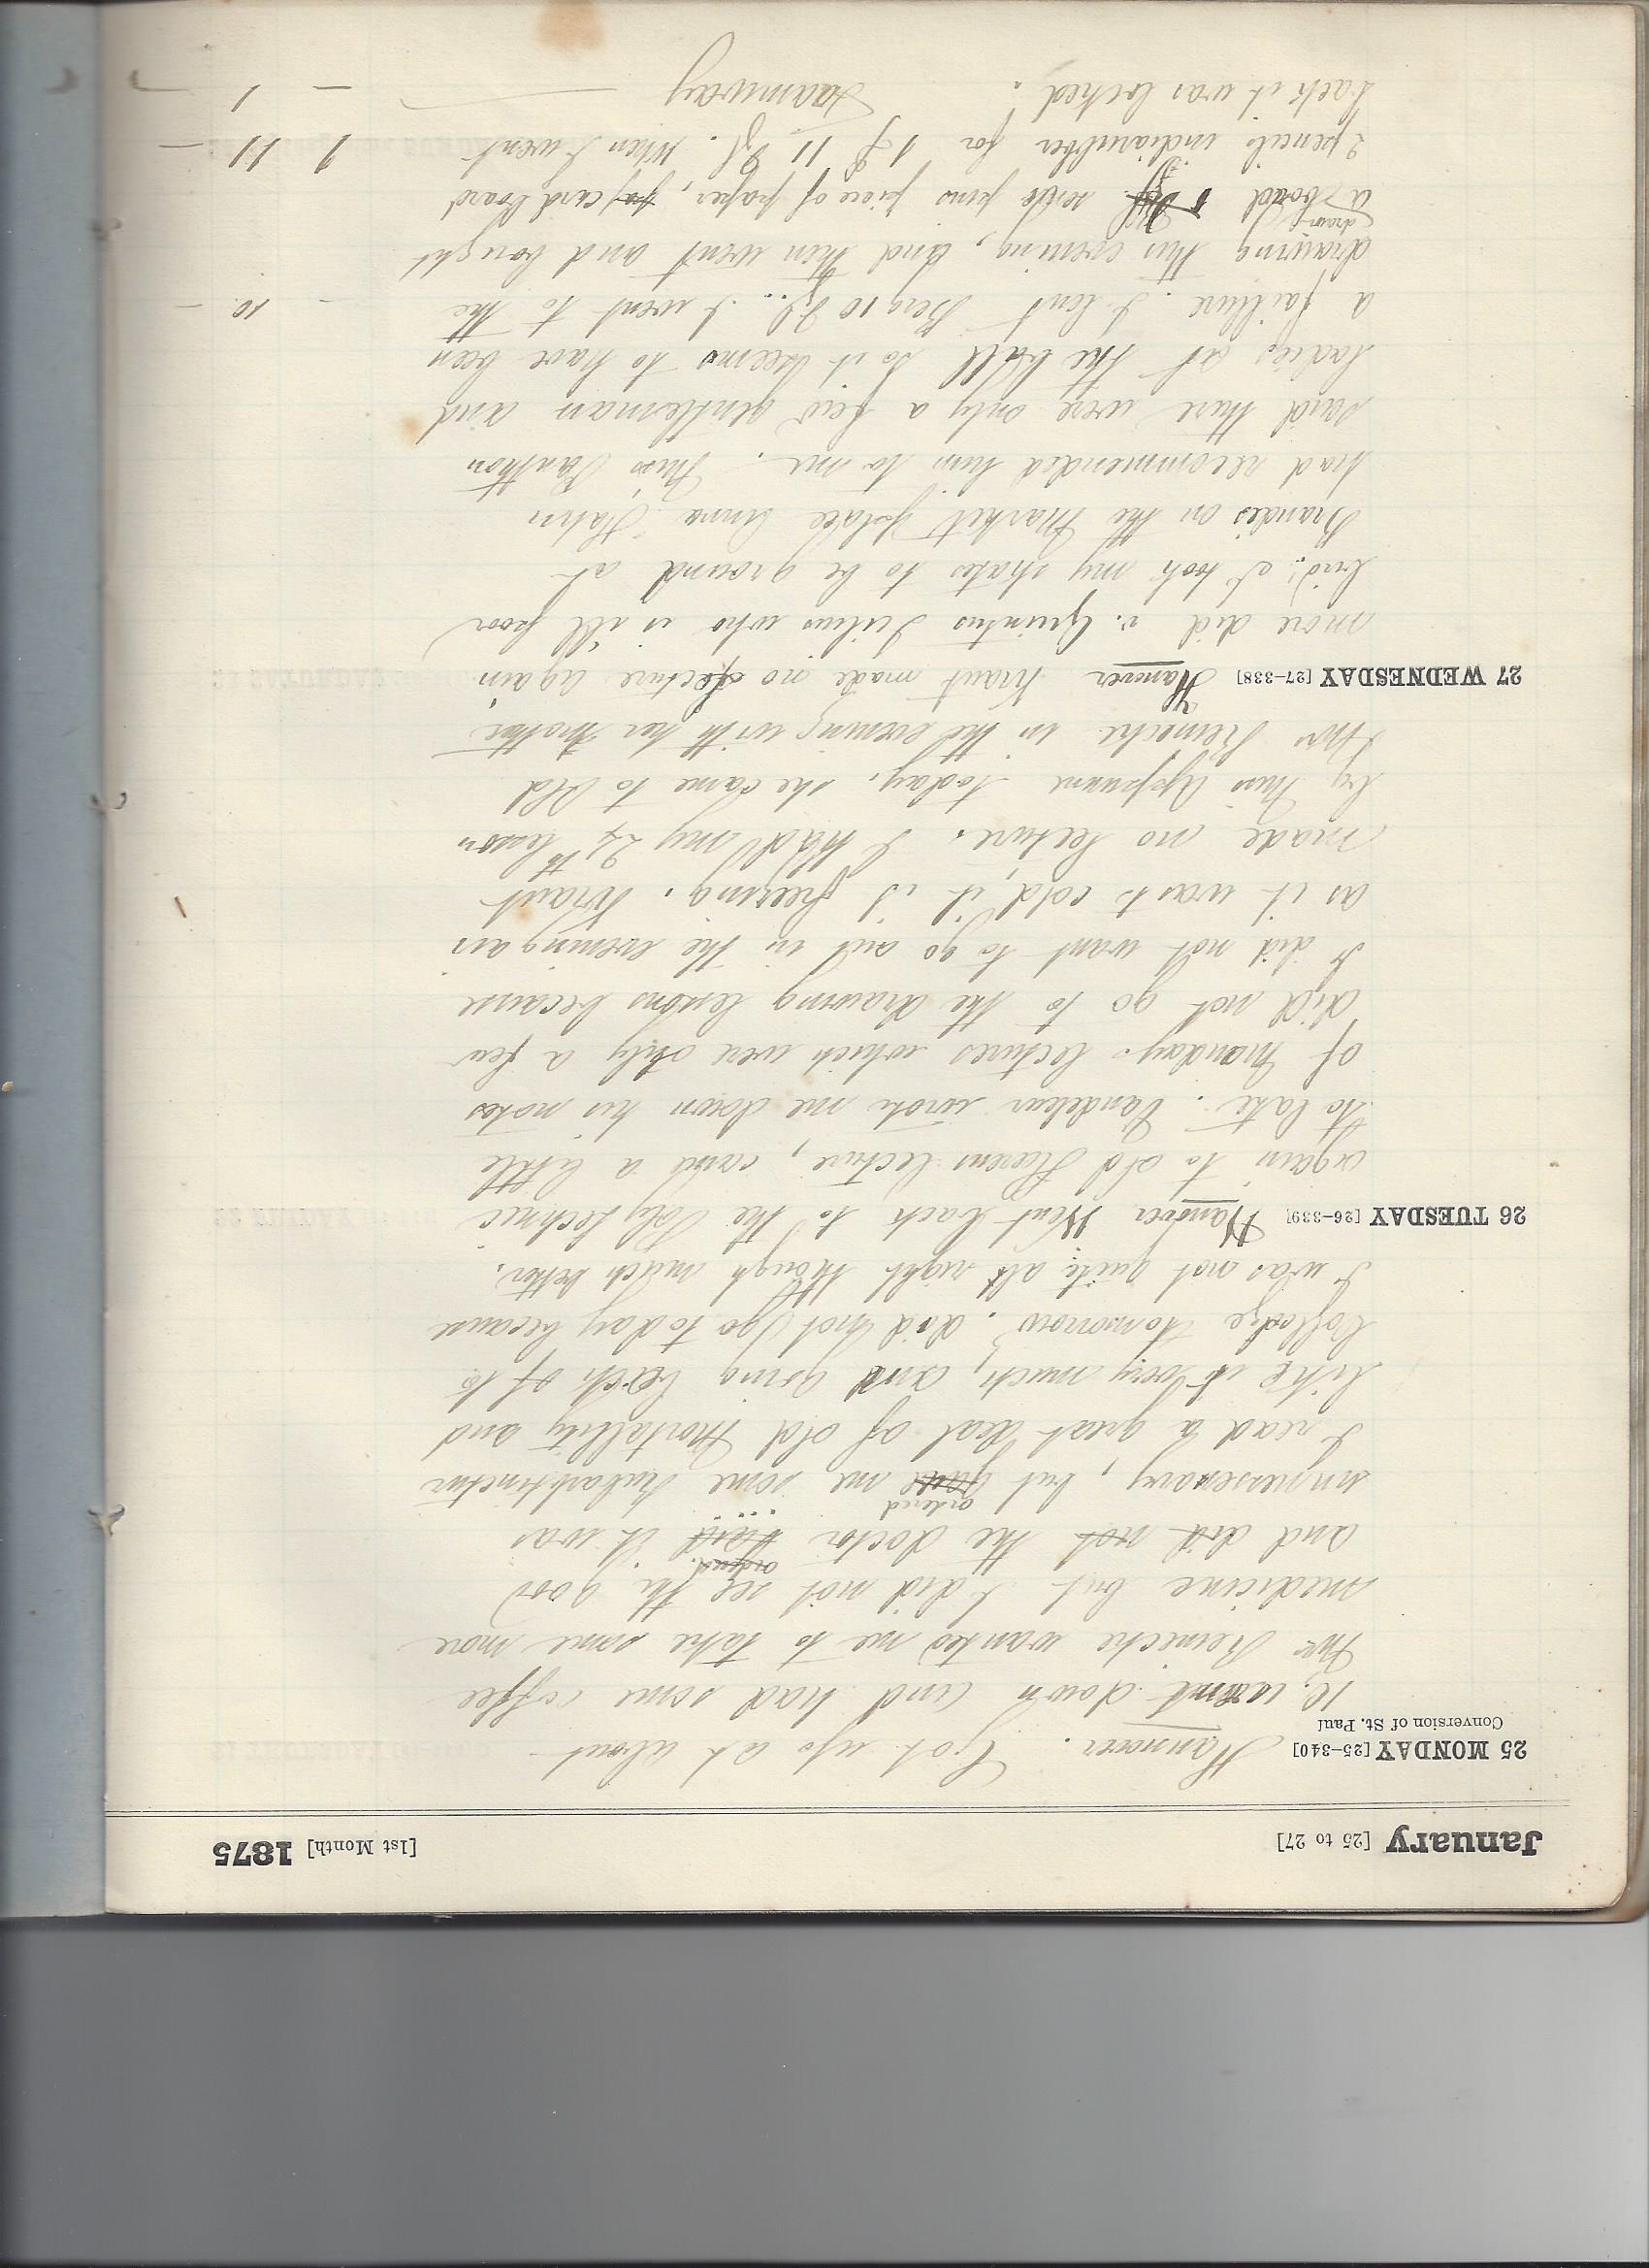 January [25 to 27] [1st Month] 1875
25 MONDAY [25-340] Hannover. Got up at about
Conversion of St. Paul
10. went down and had some coffee
Mrs Reinecke wanted me to take some more
medicine but I did not see the good
and did not the doctor said it was
ordered
unnessesary, but gave me some
I read a great deal of old Mortallity and
like it very much, and going back of to
Colledge tomorrow. did not go today because
I was not quite all right though much better.
26 TUESDAY [26-339] Hanover Went back to the Polytechnic
again to old Heerens lecture, came a little
to late. Vandeleur wrote me down his notes
of Manday. lectures which were only a few
did not go to the drawing lessons because
I did not want to go out in the evening air
as it was to cold, it is freezing. Kraut
made no lecture. I had my 24th lesson
by Miss today. she came to Old
Mrs Reinecke in the evening with her Mother
27 WEDNESDAY [27-338] Hanover Kraut made no lecture again,
more did v. Quintus Icilius who is ill poor
bird. I took my skates to be ground at
Brandes on the Market Platze Anna Hahn
had recommended him to me. Miss
said there were only a few gentleman and
ladies at the ball so it seems to have been
a failure. I lent Berg 10 Gr. I went to the - 10. -
drawing this evening, and then went and bought
draw
a board with pins piece of paper, cardboard
2 pencils indiarubber for 1 f 11 Gr. When I went 1 11 -
back it was locked. Tramway - 1 -